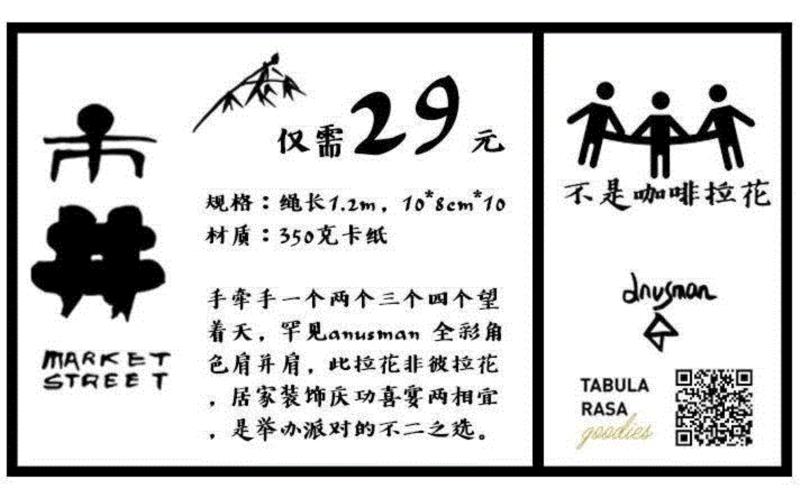 市井
MARKET
STREET
仅需29元
规格：绳长1.2m，10*8cm*10
材质：350克卡纸
手牵手一个两个三个四个望
着天，罕见anusman 全彩角
色肩并肩，此拉花非彼拉花
，居家装饰庆功喜宴两相宜
，是举办派对的不二之选。
不是咖啡拉花
anusman
TABULA
RASA
goodies